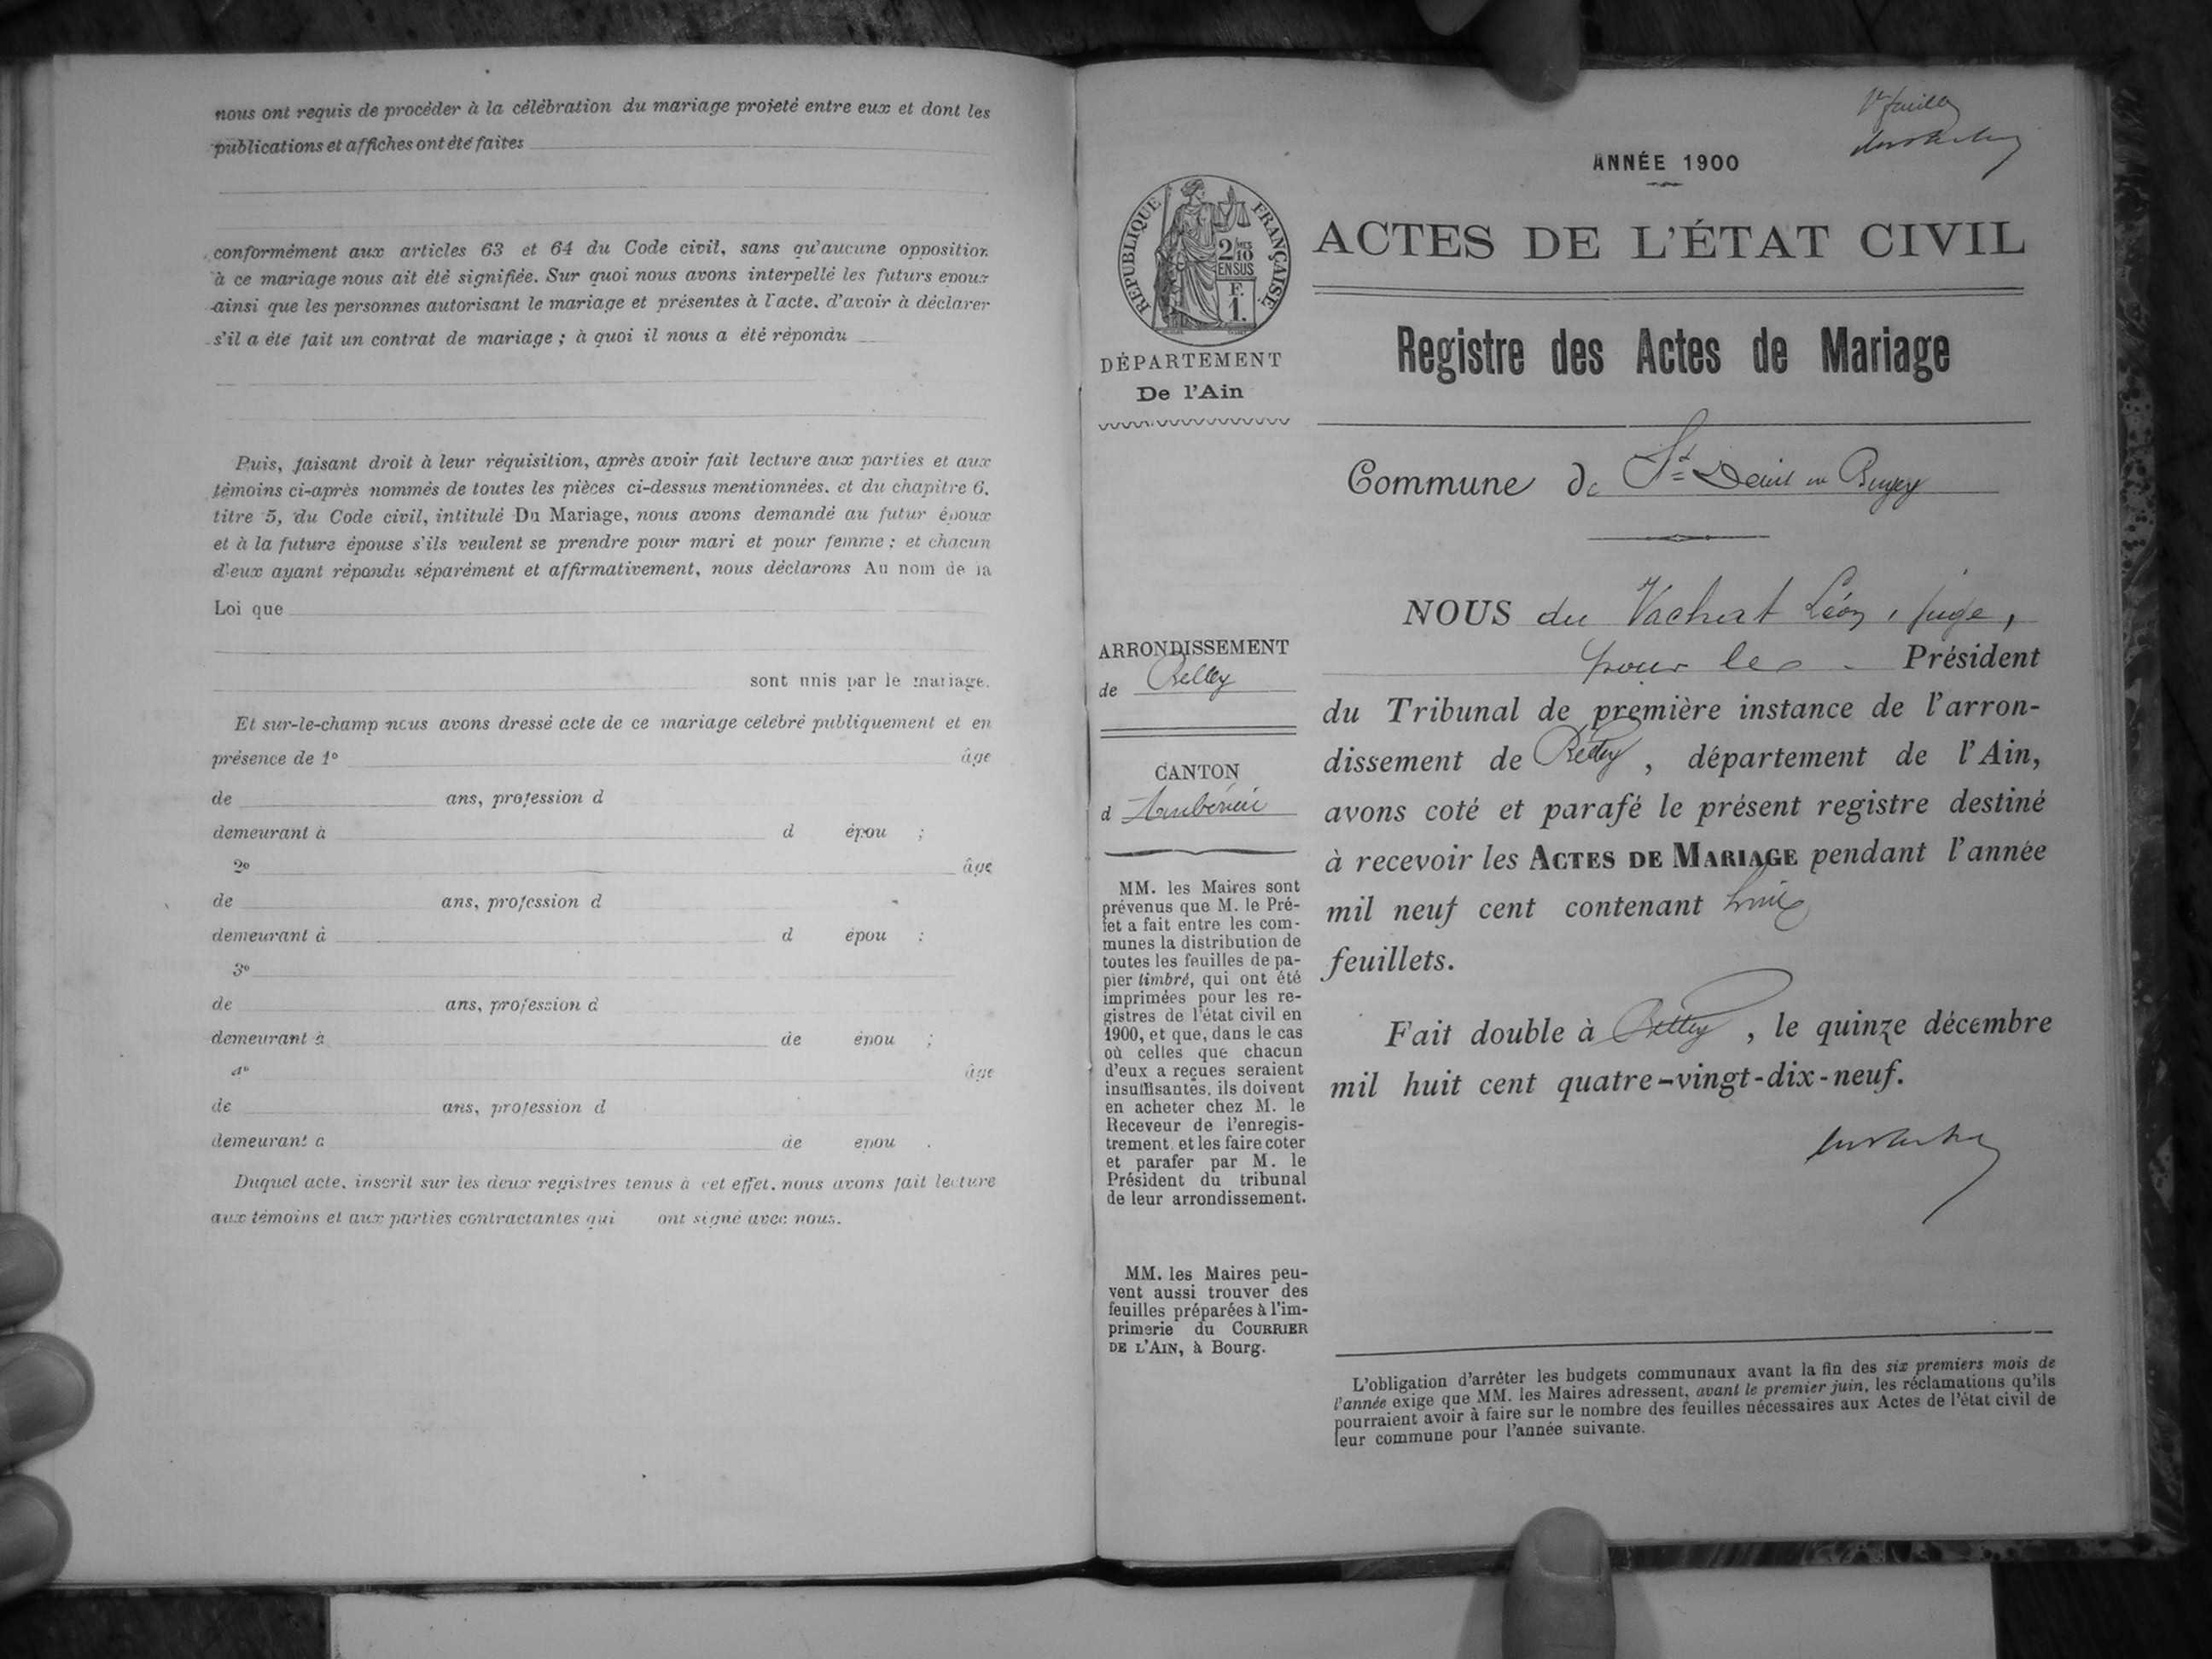 nous ont requis de procéder à la célébration du mariage projeté entre eux et dont les
publications et affiches ont été faites
conformément aux articles 63 et 64 du Code civil, sans qu'aucune opposition
à ce mariage nous ait été signifiée. Sur quoi nous avons interpellé les futurs époux
ainsi que les personnes autorisant le mariage et présentes à l'acte, d'avoir à déclarer
s'il a été fait un contrat de mariage ; à quoi il nous a été répondu
Puis, faisant droit à leur réquisition, après avoir fait lecture aux parties et aux
témoins ci-après nommés de toutes les pièces ci-dessus mentionnées, et du chapitre 6,
titre 5, du Code civil, intitulé Du Mariage, nous avons demandé au futur époux
et à la future épouse s'ils veulent se prendre pour mari et pour femme ; et chacun
d'eux ayant répondu séparément et affirmativement, nous déclarons Au nom de la
Loi que
sont unis par le mariage.
Et sur-le-champ nous avons dressé acte de ce mariage célébré publiquement et en
présence de 1º âge
de ans, profession d
demeurant à d épou ;
2º âge
de ans, profession d
demeurant à d épou ;
3º
de ans, profession d
demeurant à de épou ;
4º âge
de ans, profession d
demeurant à de épou .
Duquel acte, inscrit sur les deux registres tenus à cet effet, nous avons fait lecture
aux témoins et aux parties contractantes qui ont signé avec nous.
1er feuillet
ANNÉE 1900
RÉPUBLIQUE FRANÇAISE
2/10 EN SUS
F. 1.
ACTES DE L'ÉTAT CIVIL
Registre des Actes de Mariage
DÉPARTEMENT
De l'Ain
Commune de St Denis en Bugey
ARRONDISSEMENT
de Belley
CANTON
d Ambérieu
MM. les Maires sont
prévenus que M. le Pré-
fet a fait entre les com-
munes la distribution de
toutes les feuilles de pa-
pier timbré, qui ont été
imprimées pour les re-
gistres de l'état civil en
1900, et que, dans le cas
où celles que chacun
d'eux a reçues seraient
insuffisantes, ils doivent
en acheter chez M. le
Receveur de l'enregis-
trement et les faire coter
et parafer par M. le
Président du tribunal
de leur arrondissement.
MM. les Maires peu-
vent aussi trouver des
feuilles préparées à l'im-
primerie du COURRIER
DE L'AIN, à Bourg.
NOUS du Vachat Léon, juge,
pour le Président
du Tribunal de première instance de l'arron-
dissement de Belley, département de l'Ain,
avons coté et parafé le présent registre destiné
à recevoir les ACTES DE MARIAGE pendant l'année
mil neuf cent contenant
feuillets.
Fait double à Belley, le quinze décembre
mil huit cent quatre-vingt-dix-neuf.
L'obligation d'arrêter les budgets communaux avant la fin des six premiers mois de
l'année exige que MM. les Maires adressent, avant le premier juin, les réclamations qu'ils
pourraient avoir à faire sur le nombre des feuilles nécessaires aux Actes de l'état civil de
leur commune pour l'année suivante.